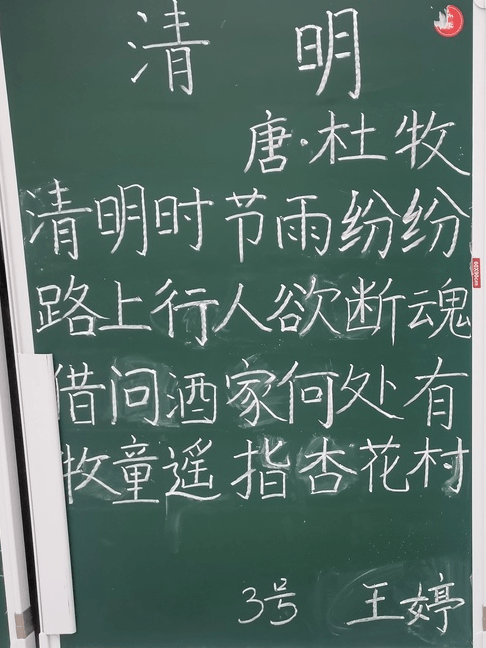 清 明
唐·杜牧
清明时节雨纷纷
路上行人欲断魂
借问酒家何处有
牧童遥指杏花村
3号 王婷